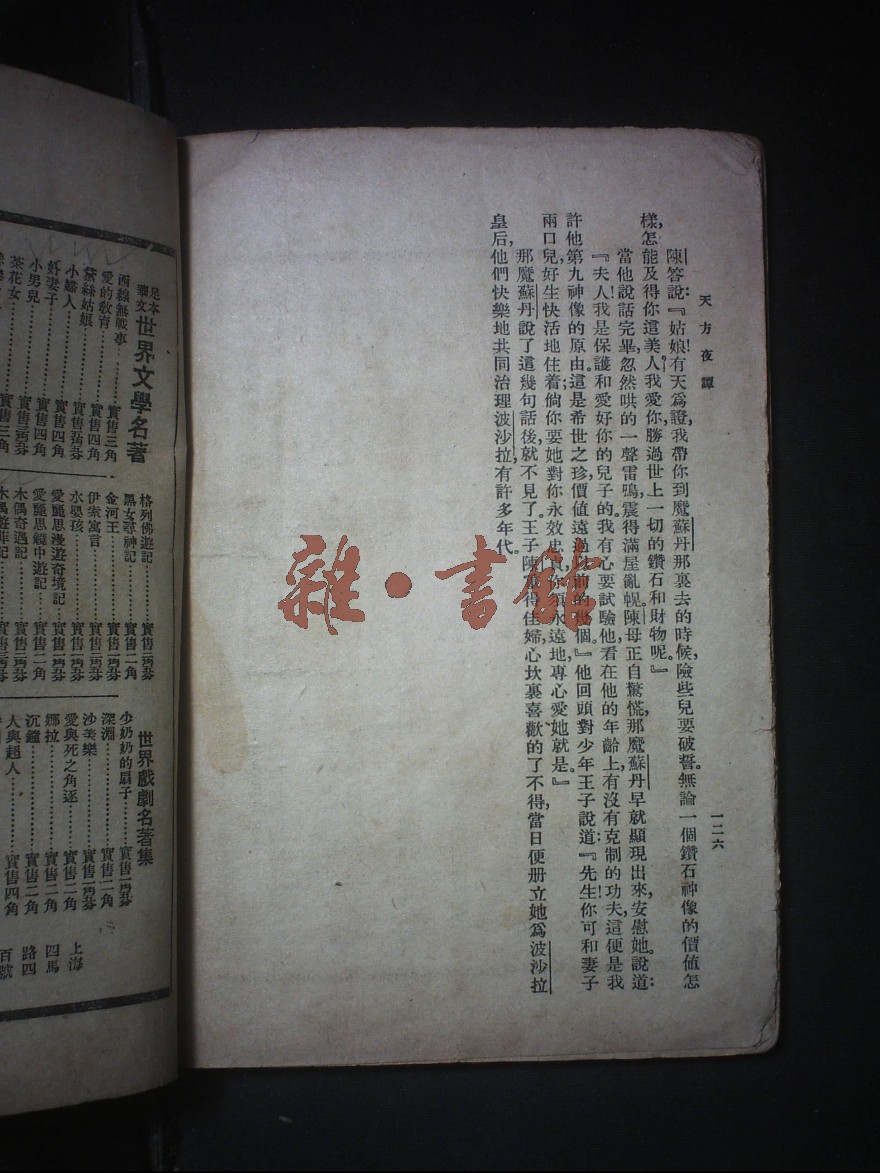 天方夜譚
一二六
陳答說:『姑娘!有天爲證,我帶你到魔蘇丹那裏去的時候,險些兒要破誓。無論一個鑽石神像的價值怎
樣,怎能及得你這美人。我愛你,勝過世上一切的鑽石和財物呢。』
當他說話完畢,忽然哄的一聲雷鳴,震得滿屋亂幌。陳母正自驚慌,那魔蘇丹早就顯現出來,安慰她。說道:
『夫人!我是保護和愛好你的兒子的。我有心要試驗他,看在他的年齡上,有沒有克制的功夫。這便是我
許他第九神像的原由。這是希世之珍,價值遠過以前的幾個。』他回頭對少年王子說道:『先生!你可和妻子
兩口兒好生快活地住着;倘你要她對你永效忠貞,你須永遠地專心愛她就是。』
那魔蘇丹說了這幾句話後,就不見了。王子陳
得佳婦,心坎裏喜歡的了不得,當日便册立她爲波沙拉
皇后,他們快樂地共同治理波沙拉,有許多年代。
雜·書館
足本
華文
世界文學名著
西線無戰事……實售三角
愛的教育……實售四角
黛絲姑娘……實售
小婦人……實售四角
好妻子……實售四角
小男兒……實售四角
茶花女……實售三角
格列佛遊記……實售
黑女尋神記……實售二角
金河王……實售二角
伊索寓言……實售
水嬰孩……實售
愛麗思漫遊奇境記……實售
愛麗思鏡中遊記……實售二角
木偶奇遇記……實售
木偶遊菲記……實售
世界戲劇名著集
少奶奶的扇子……實售
深淵……實售二角
沙美樂……實售
愛與死之角逐……實售二角
娜拉……實售二角
沉鐘……實售二角
人與超人……實售四角
上海
四馬
路四
百號